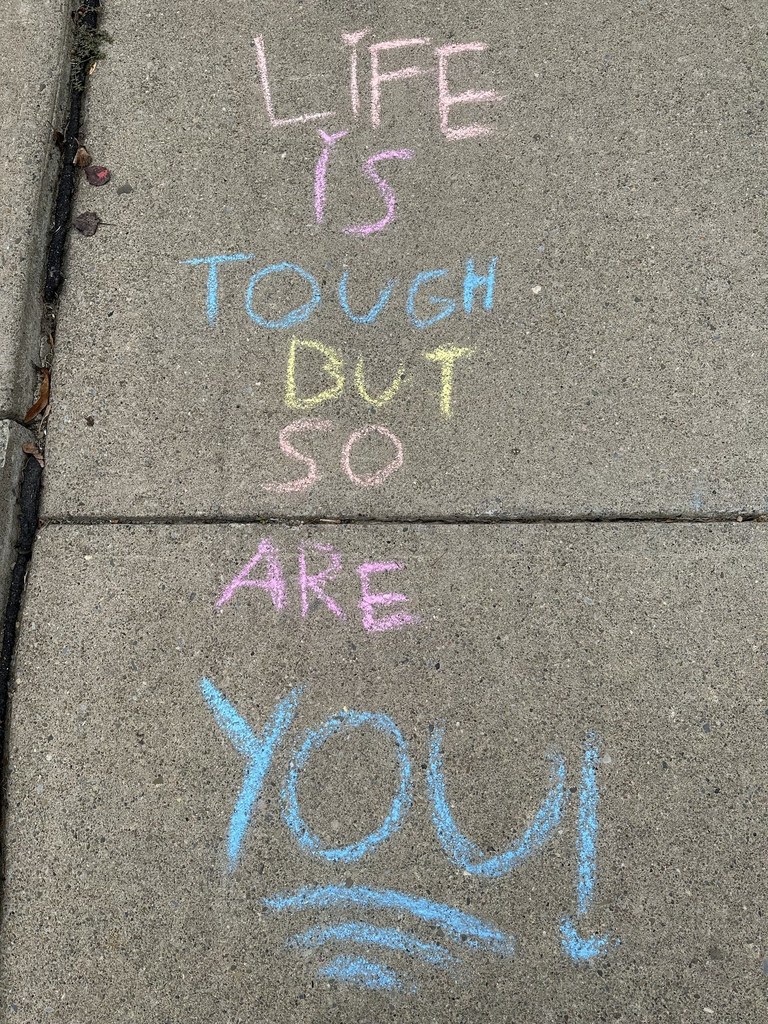 LIFE
IS
TOUGH
BUT
SO
ARE
YOU!